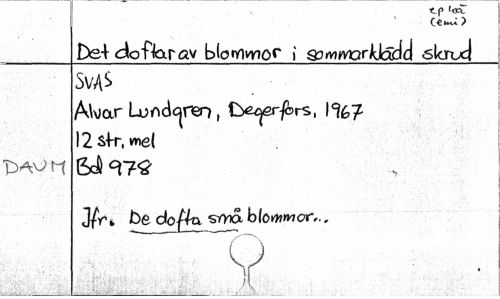 ep kä
(emi)
Det doftar av blommor i sommarklädd skrud
SVAS
Alvar Lundgren, Degerfors, 1967
12 str, mel
DAUM Bd 978
Jfr. De dofta små blommor...